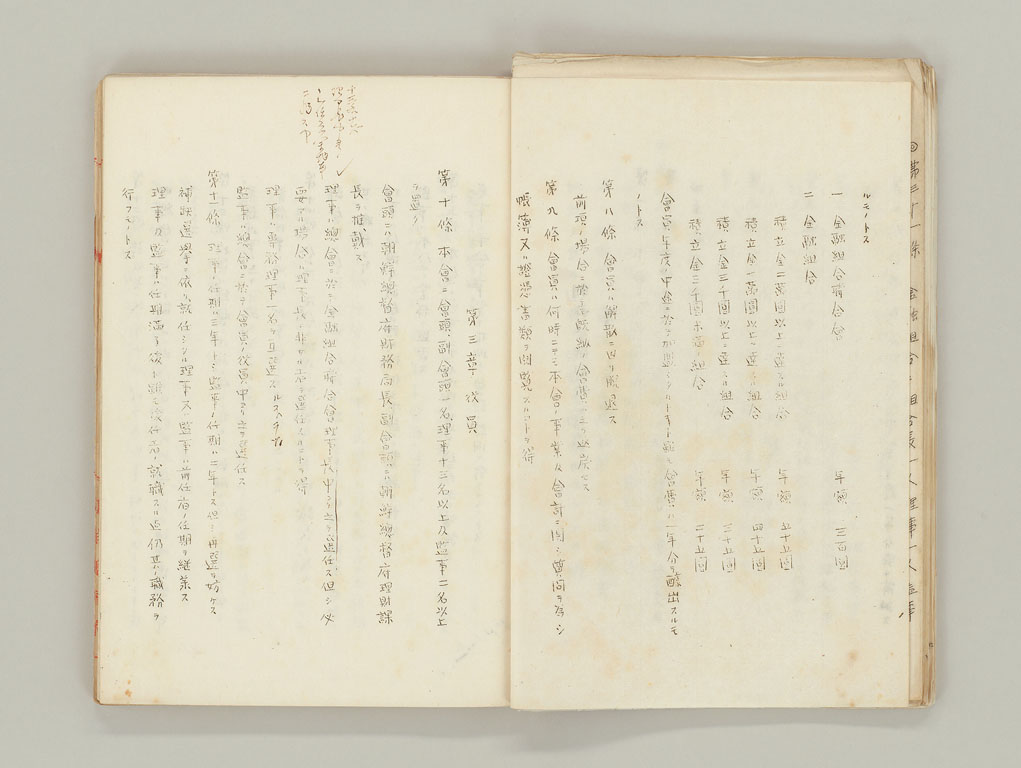 ルモノトス
一 金融組合聯合會 年額 三百圓
二 金融組合
積立金二萬圓以上ニ達シタル組合 年額 五十五圓
積立金一萬圓以上ニ達シタル組合 年額 四十五圓
積立金三千圓以上ニ達シタル組合 年額 三十五圓
積立金三千圓未滿ノ組合 年額 二十五圓
會員年度ノ中途ニ於テ加盟シタルトキト雖モ會費ハ一年分ヲ醵出スルモ
ノトス
第八條 會員ハ解散ニ因リ脱退ス
前項ノ場合ニ於テ既納ノ會費ハ之ヲ返戻セス
第九條 會員ハ何時ニテモ本會ノ事業及會計ニ關シ質問ヲ爲シ
帳簿又ハ證憑書類ヲ閲覽スルコトヲ得
第三章 役員
第十條 本會ニ會頭副會頭一名理事十三名以上及監事二名以上
ヲ置ク
會頭ニハ朝鮮總督府財務局長副會頭ニハ朝鮮總督府理財課
長ヲ推戴ス
理事ハ總會ニ於テ金融組合聯合會理事長中ヨリ之ヲ選任ス但シ必
要アル場合ハ理事長ニ非サル者ヲ選任スルコトヲ得
理事ハ常務理事一名ヲ互選ス
監事ハ總會ニ於テ會員ノ役員中ヨリ之ヲ選任ス
第十一條 理事ノ任期ハ三年トシ監事ノ任期ハ二年トス但シ再選ヲ妨ケス
補缺選擧ニ依リ就任シタル理事又ハ監事ハ前任者ノ任期ヲ繼承ス
理事及監事ハ任期滿了後ト雖モ後任者ノ就職スル迄仍其ノ職務ヲ
行フモノトス